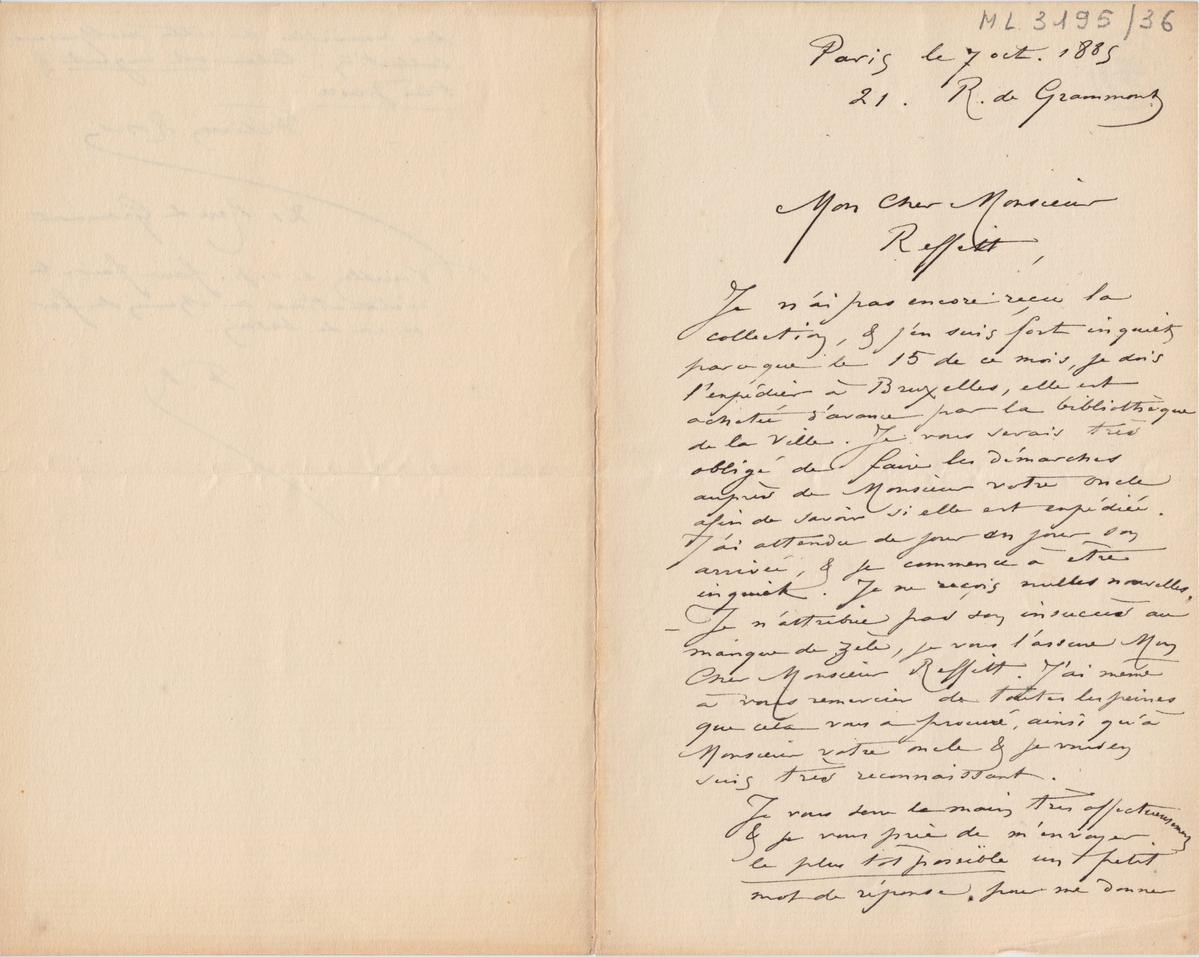 ML 3195/36
Paris le 7 oct. 1885
21. R. de Grammont
Mon Cher Monsieur
Reffitt,
Je n'ai pas encore reçu la
collection, & j'en suis fort inquiet
parceque le 15 de ce mois, je dois
l'expédier à Bruxelles, elle est
acheteé d'avance par la bibliothèque
de la Ville. Je vous serais très
obligé de faire les démarches
auprès de Monsieur votre oncle
afin de savoir si elle est expédiée.
J'ai attendu de jour en jour son
arrivée, & je commence à être
inquiet. Je ne reçois nulles nouvelles.
– Je n'attribue pas son insuccès au
manque de zèle, je vous l'assure Mon
Cher Monsieur Reffitt. J'ai même
à vous remercier de toutes les peines
que cela vous a procuré, ainsi qu'à
Monsieur votre oncle & je vous en
suis très reconnaissant.
Je vous serre la main très affectueusement
& je vous prie de m'envoyer
le plus tôt possible un petit
mot de réponse, pour me donner